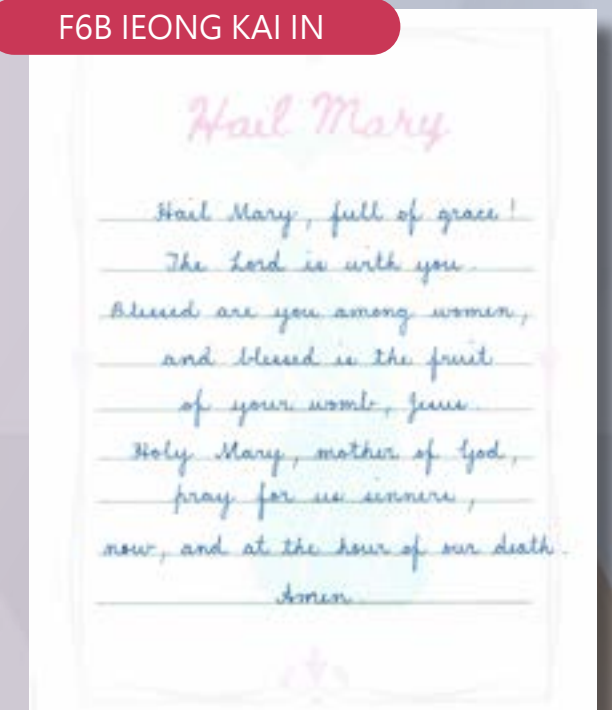 F6B IEONG KAI IN
Hail Mary
Hail Mary, full of grace!
The Lord is with you.
Blessed are you among women,
and blessed is the fruit
of your womb, Jesus.
Holy Mary, mother of God,
pray for us sinners,
now, and at the hour of our death.
Amen.